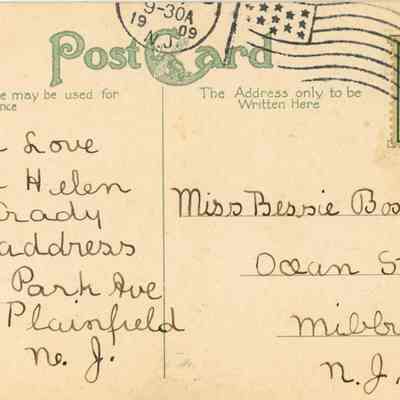 9-30A
19 09
N.J.
Post Card
e may be used for
nce
The Address only to be
Written Here
Love
Helen
Grady
address
Park Ave
Plainfield
N. J.
Miss Bessie Bos
Ocean S
Millb
N.J.